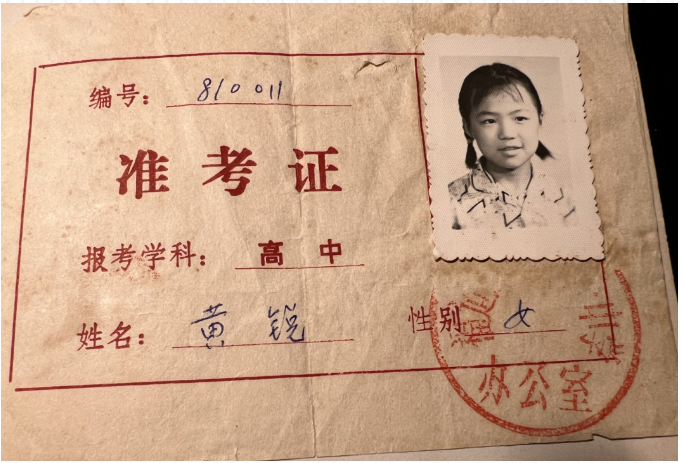 编号：810011
准考证
报考学科：高中
姓名：黄锐
性别 女
办公室